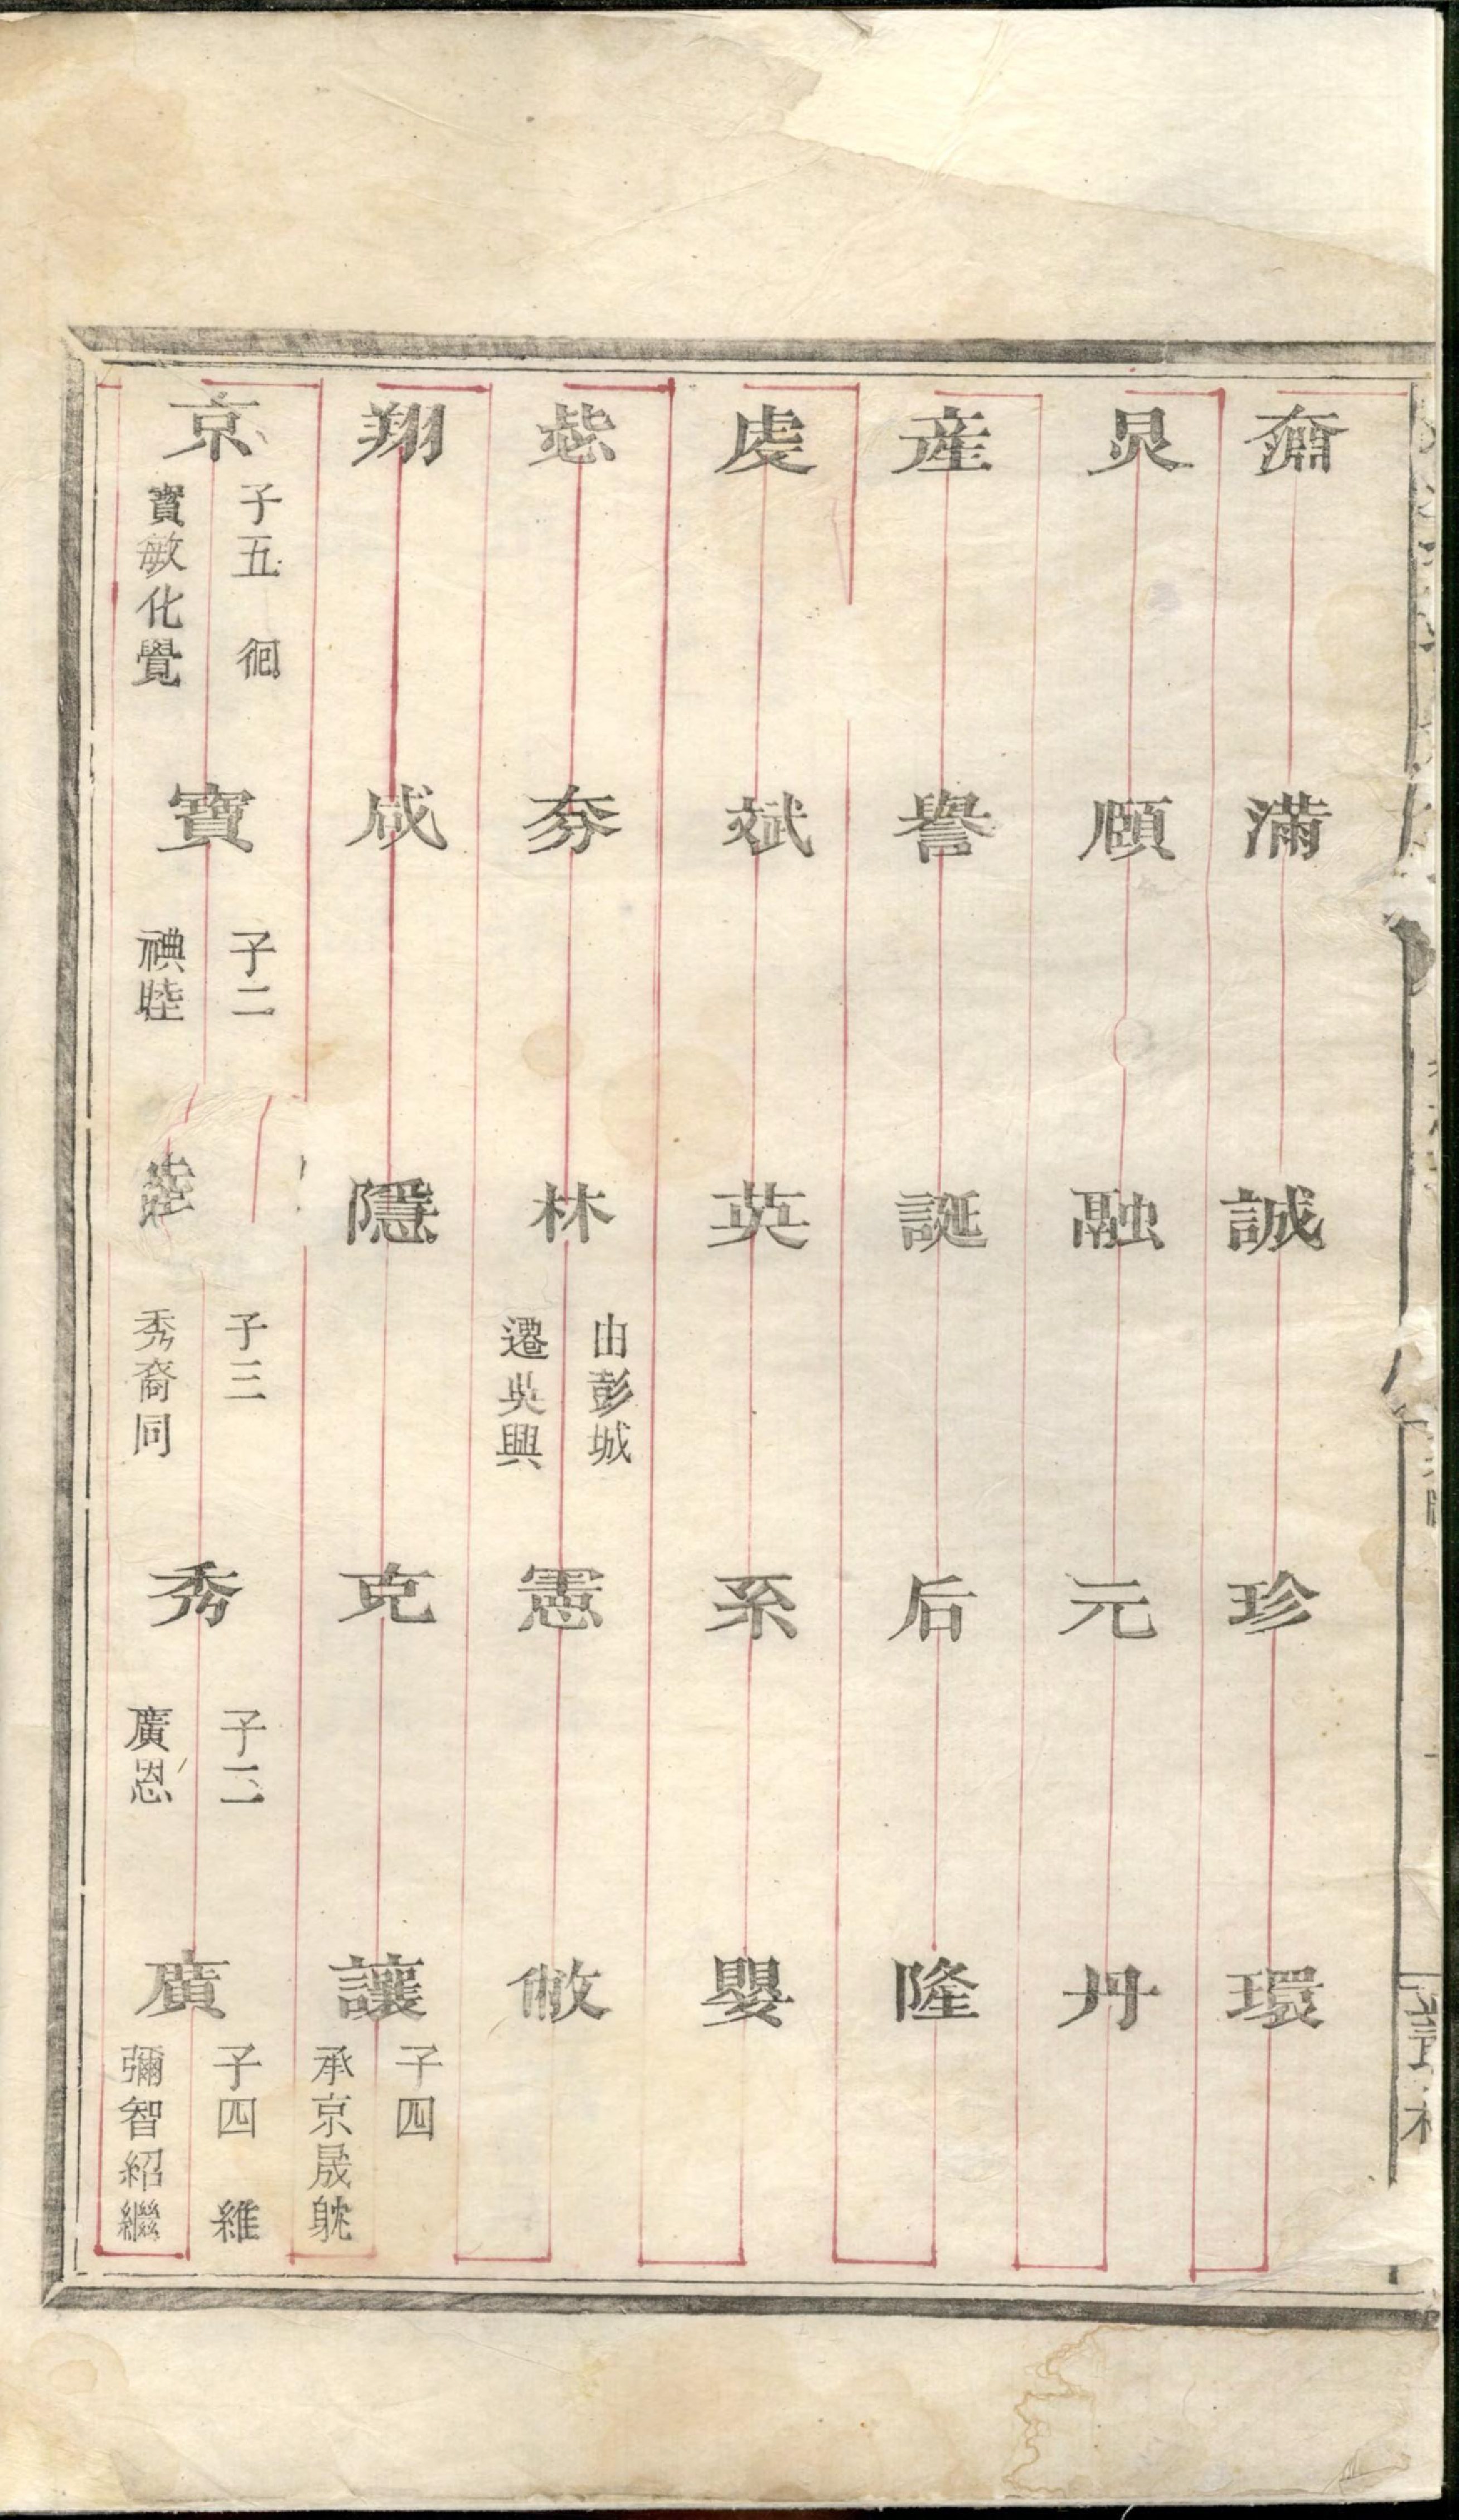 奫
滿
誠
珍
環
炅
頤
融
元
丹
産
譽
誕
后
隆
虔
斌
英
系
嬰
夯
林
由彭城
遷吳興
憲
敝
翔
咸
隱
克
讓
子四
承京晟躭
京
子五 徊
寳敏化覺
寶
子二
禩睦
睦
子三
秀裔同
秀
子二
廣恩
廣
子四 維
彌智紹繼